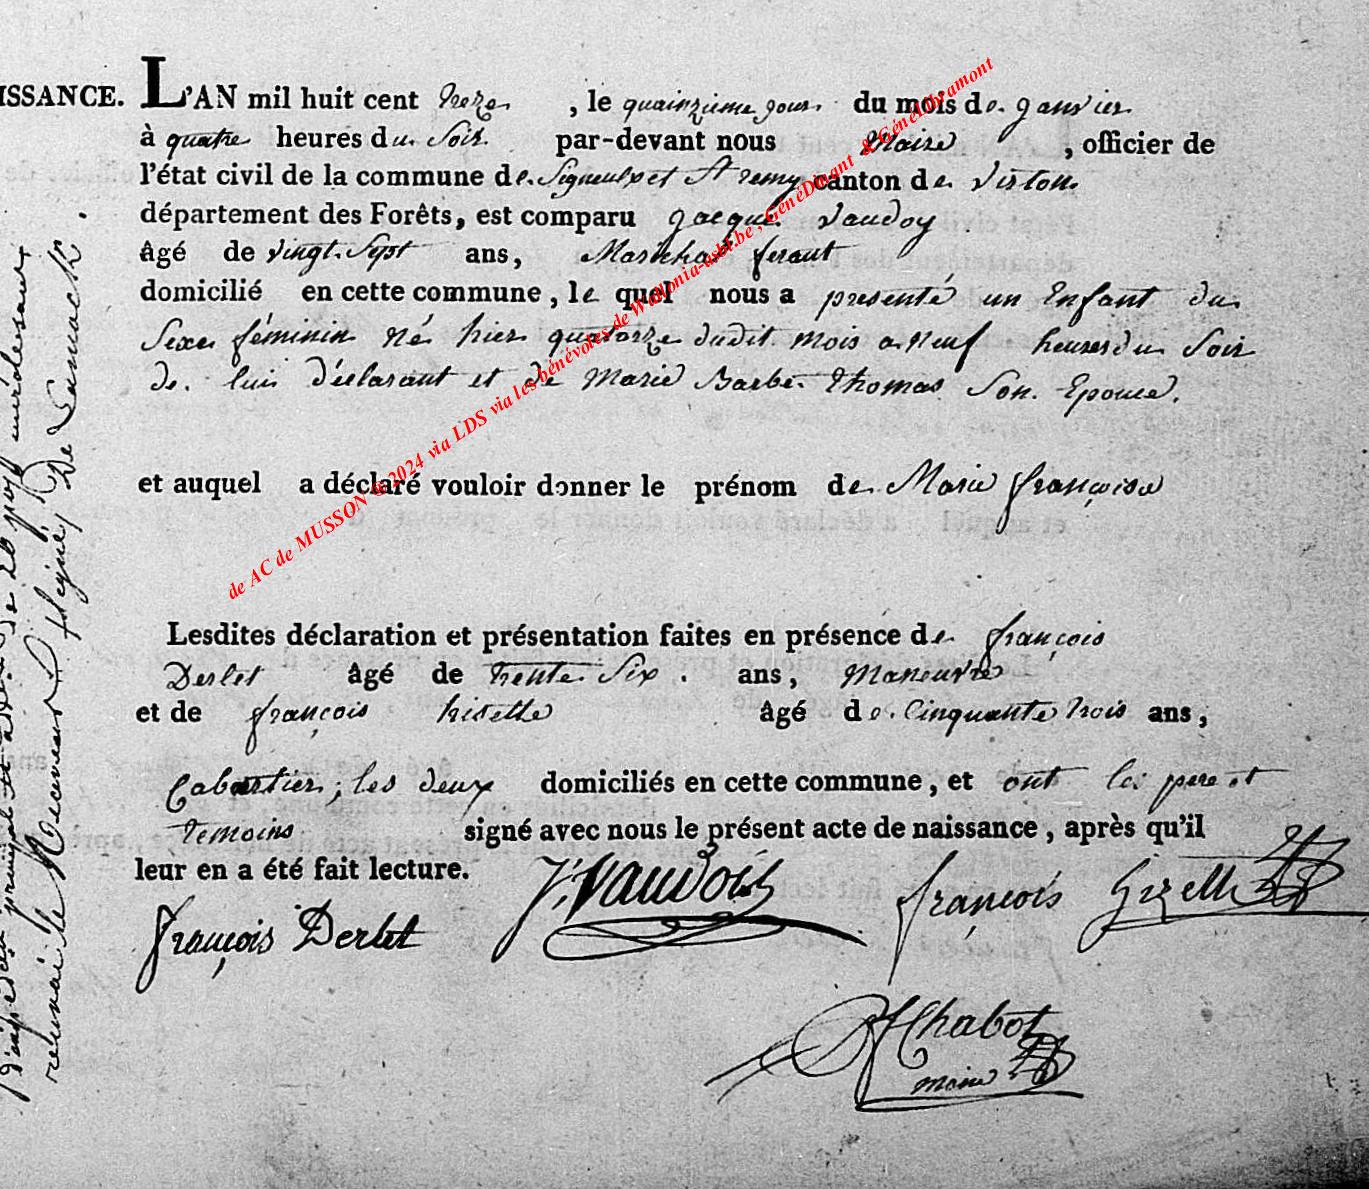 ISSANCE. L'AN mil huit cent treze , le quainzieme jour du mois de janvier
à quatre heures du Soir par-devant nous Maire , officier de
l'état civil de la commune de Signeulx et St remy canton de virton
département des Forêts, est comparu jacque vaudoy
âgé de vingt Sept ans, Marichal feraut
domicilié en cette commune, le quel nous a presenté un Enfant du
Sexe féminin né hier quatorze dudit mois a neuf heures du Soir
de lui déclarant et de Marie Barbe Thomas Son Epouse.
et auquel a déclaré vouloir donner le prénom de Marie françoise
Lesdites déclaration et présentation faites en présence de françois
Derlet âgé de trente Six . ans, Maneuvre
et de françois hisette âgé de Cinquante trois ans,
Cabartier, les deux domiciliés en cette commune, et ont le pere et
temoins signé avec nous le présent acte de naissance, après qu'il
leur en a été fait lecture.
J. Vaudois
françois Gizette
françois Derlet
Chabot
maire
de AC de MUSSON @2024 via LDS via les bénévoles de Wallonia-asbl.be , GénéDinant & GénéLibramont